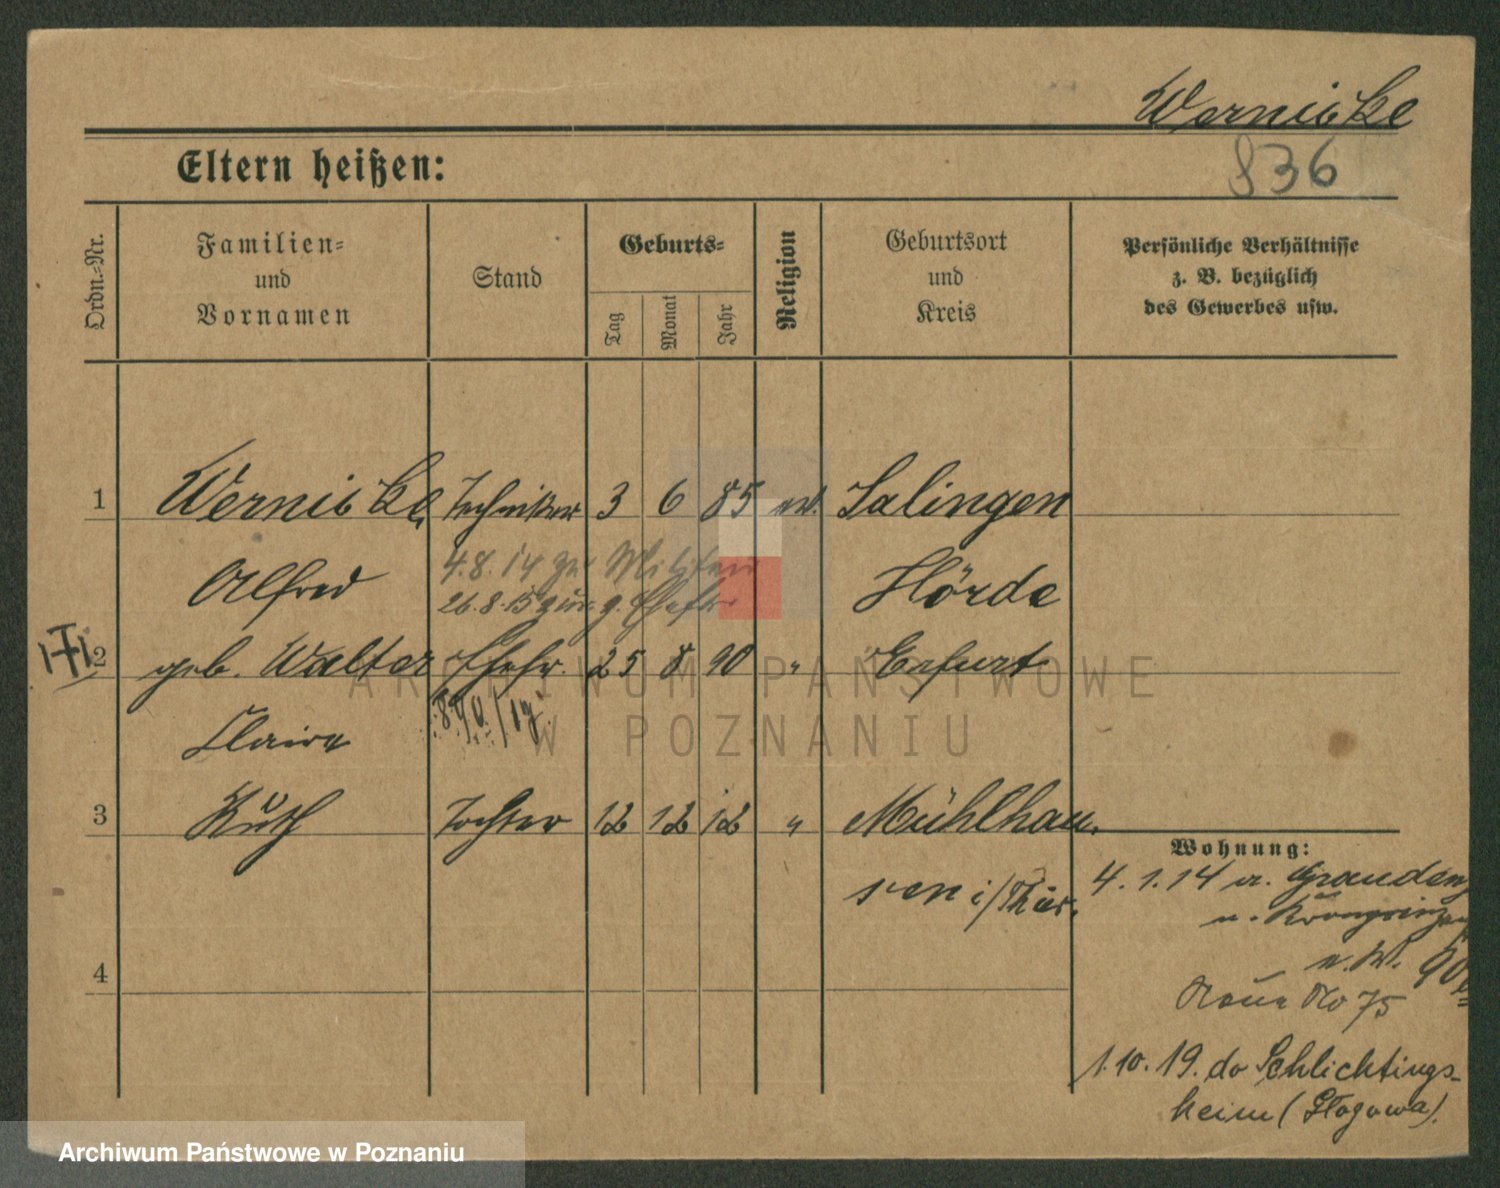 Wernicke
836
Eltern heißen:
Ordn.-Nr.
Familien-
und
Vornamen
Stand
Geburts-
Tag
Monat
Jahr
Religion
Geburtsort
und
Kreis
Persönliche Verhältnisse
z. B. bezüglich
des Gewerbes usw.
1 Wernicke, Techniker 3 6 85 ev. Salingen
Alfred
4.8.14 zu Militair
26.8.15 zur.
Hörde
2 geb. Walter Ehefr. 25 8 90 " Erfurt
Claire
3 Ruth Tochter 12 12 12 " Mühlhau.
sen i/Thür.
Wohnung:
4.1.14 a. Grauden
u. Kronprinzen
90
Neue No 75
4
1.10.19. do Schlichtings-
heim (Głogowa).
ARCHIWUM PAŃSTWOWE
W POZNANIU
Archiwum Państwowe w Poznaniu